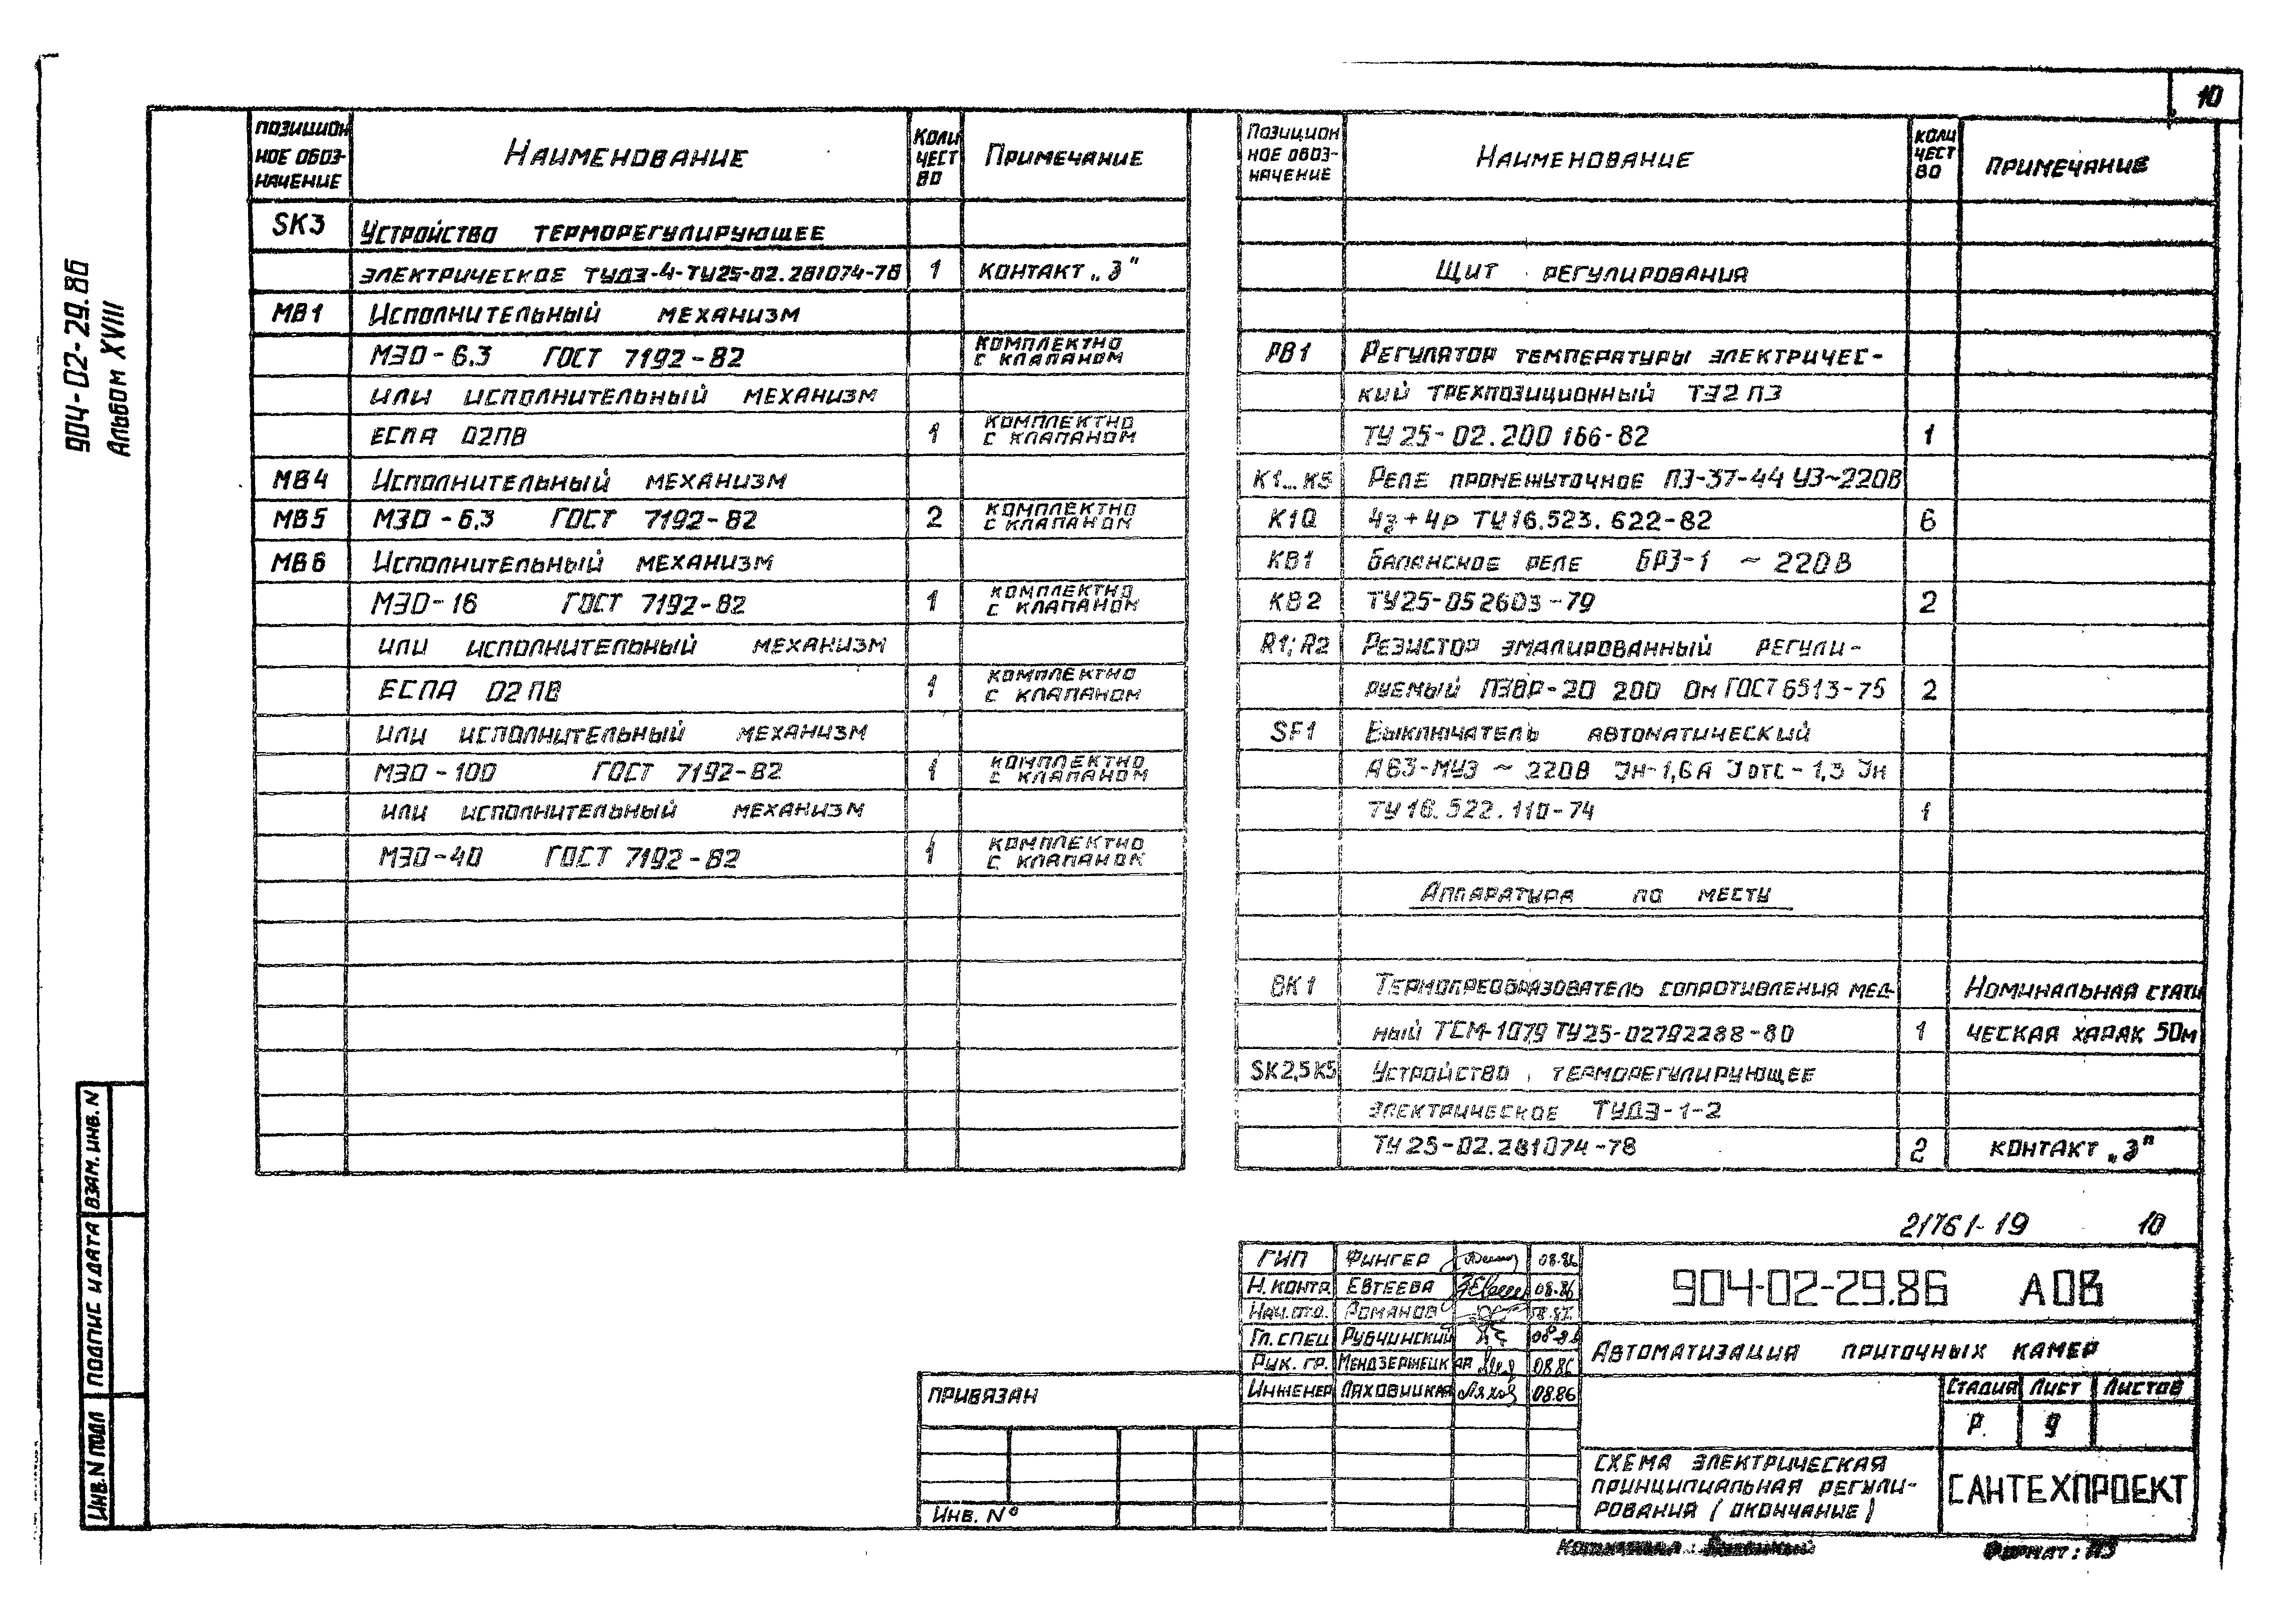 10
904-02-29.86
Альбом XVIII
Позиционное обозначение Наименование Количество Примечание
SK3 Устройство терморегулирующее
электрическое ТУДЭ-4-ТУ25-02.281074-78 1 контакт „З"
МВ1 Исполнительный механизм
МЭО-6.3 ГОСТ 7192-82 комплектно с клапаном
или исполнительный механизм
ЕСПА 02ПВ 1 комплектно с клапаном
МВ4 Исполнительный механизм
МВ5 МЭО-6.3 ГОСТ 7192-82 2 комплектно с клапаном
МВ6 Исполнительный механизм
МЭО-16 ГОСТ 7192-82 1 комплектно с клапаном
или исполнительный механизм
ЕСПА 02ПВ 1 комплектно с клапаном
или исполнительный механизм
МЭО-100 ГОСТ 7192-82 1 комплектно с клапаном
или исполнительный механизм
МЭО-40 ГОСТ 7192-82 1 комплектно с клапаном
Позиционное обозначение Наименование Количество Примечание
Щит регулирования
РВ1 Регулятор температуры электричес-
кий трехпозиционный ТЭ2ПЗ
ТУ25-02.200166-82 1
К1...К5 Реле промежуточное ПЭ-37-44 УЗ~220В
К10 4з+4р ТУ16.523.622-82 6
КВ1 Балансное реле БРЭ-1 ~ 220В
КВ2 ТУ25-052603-79 2
R1; R2 Резистор эмалированный регули-
руемый ПЭВР-20 200 Ом ГОСТ 6513-75 2
SF1 Выключатель автоматический
А63-МУЗ ~ 220В Iн-1,6А Iотс-1,3 Iн
ТУ16.522.110-74 1
Аппаратура по месту
ВК1 Термопреобразователь сопротивления мед- Номинальная стати
ный ТСМ-1079 ТУ25-02792288-80 1 ческая харак 50м
SK2, SK5 Устройство терморегулирующее
электрическое ТУДЭ-1-2
ТУ25-02.281074-78 2 контакт „З"
21761-19 10
ГИП Фингер 08.86
Н.контр. Евтеева 08.86
Нач.отд. Романов
Гл.спец Рубчинский 08.86
Рук. гр. Мендзержецкая 08.86
Инженер Ляховицкая 08.86
904-02-29.86 АОВ
Автоматизация приточных камер
Стадия Лист Листов
Р 9
Схема электрическая
принципиальная регули-
рования (окончание)
САНТЕХПРОЕКТ
Привязан
Инв. №
Взам. инв. N
Подпис и дата
Инв. N подл
Формат: А3